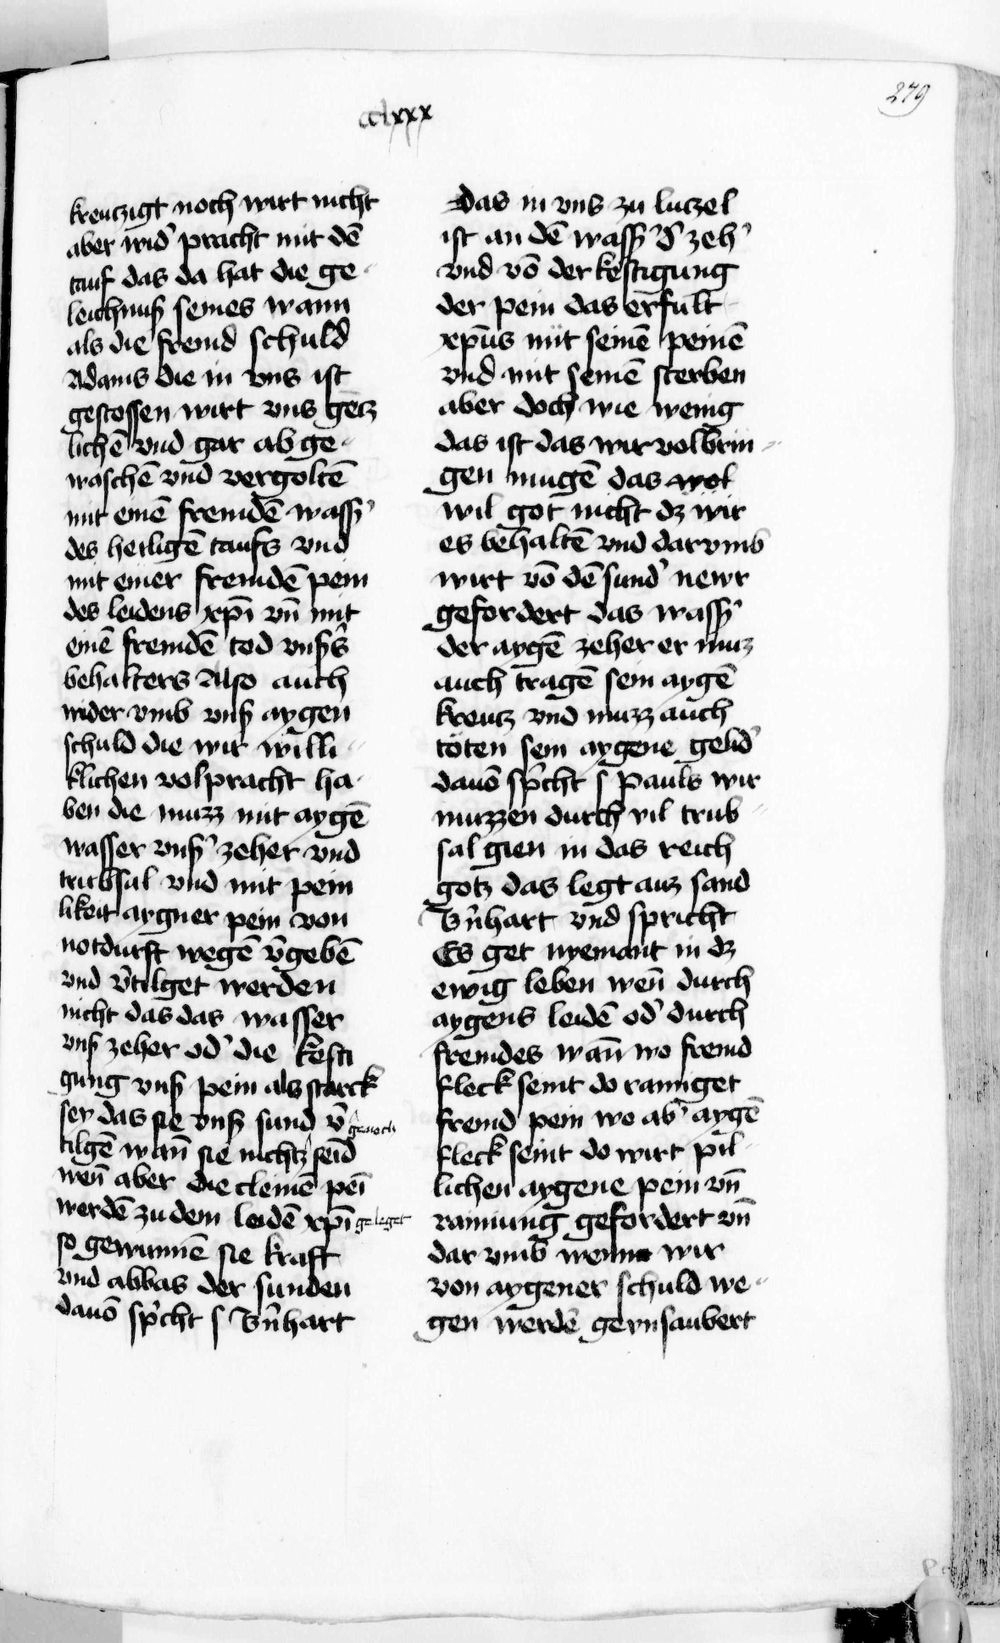 279
cclxxx
kreutzigt noch wirt nicht
aber wid' pracht mit dē
tauf das da hat die ge-
leichnuß seines wann
als die fremd schuld
Adams die in vns ist
gestossen wirt vns gētz
lichē vnd gar ab ge-
waschē vnd vergoltē
mit einē fremdē wass'
des heiligē taufs vnd
mit einer fremdē pein
des leidens xp̄i vn̄ mit
einē fremdē tod vnßs
behalters Also auch
wider vmb vnß aygen
schuld die wir willi-
klichen volpracht ha-
ben die muzz mit aygē
wasser vnß' zeher vnd
trubsal vnd mit pein
likeit aygner pein von
notdurft wegē v̄gebē
vnd v̄tilget werden
nicht das das wasser
vnß zeher od' die kesti
gung vnß pein als starck
sey das sie vnß sund v̄
tilgē wan̄ sie nichtz seīd
wen̄ aber die cleinē peī
werdē zu dem leidē xp̄i geleget
so gewinnē sie kraft
vnd ablas der sunden
dauō sp'cht s B'nhart
Das in vns zu lutzel
ist an dē wass' d' zeh'
vnd vō der kestigung
der pein das erfult
xp̄us mit seinē peinē
vnd mit seinē sterben
aber doch wie wenig
das ist das wir volbrin-
gen mugē das wol
wil got nicht dz wir
es behaltē vnd darvmb
wirt vō dē sund' newr
gefordert das wass'
der aygē zeher er muz
auch tragē sein aygē
kreutz vnd muzz auch
töten sein aygene gelid'
dauō sp'cht s Pauls wir
muzzen durch vil trub-
sal gien in das reich
gotz das legt auz sand
B'nhart vnd spricht
Es get nyemant in dz
ewig leben wen̄ durch
aygens leidē od' durch
fremdes wan̄ wo fremd
fleck seint do rainiget
fremd pein wo ab' aygē
fleck seint do wirt pil-
lichen aygene pein vn̄
rainiung gefordert vn̄
dar vmb wenn wir
von aygener schuld we-
gen werdē geynsaubert